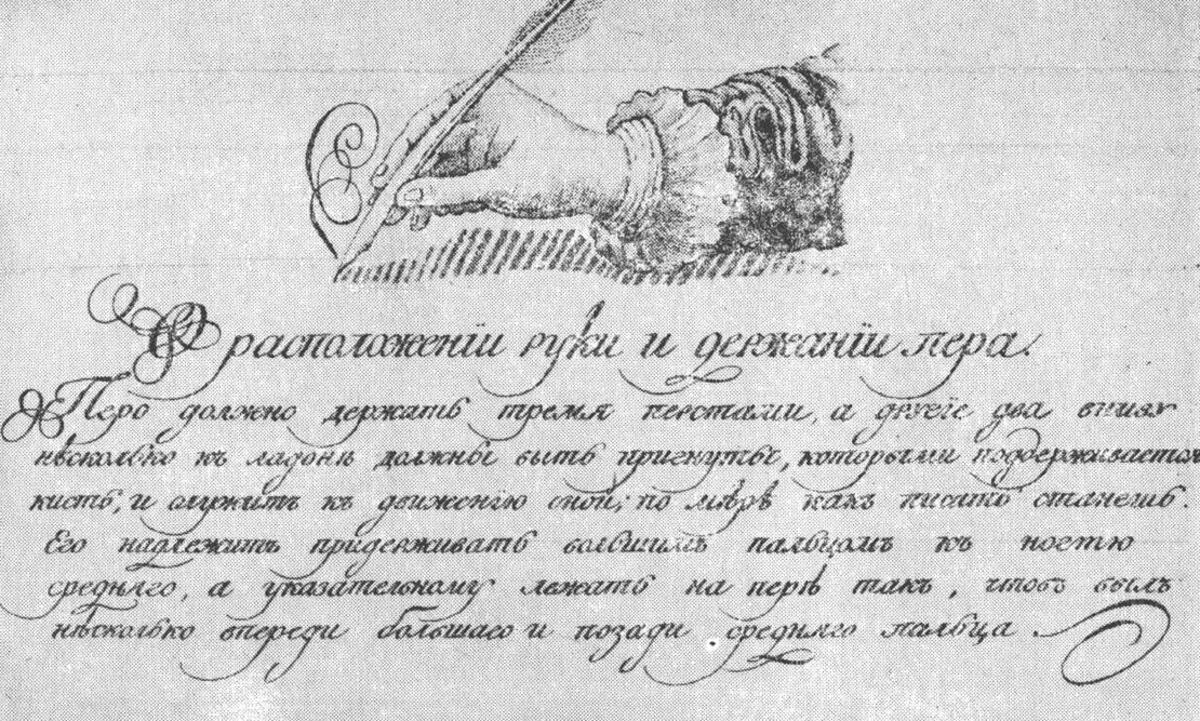 О расположеніи руки и держаніи пера.
Перо должно держать тремя перстами, а другіе два внизу
нѣсколько къ ладонѣ должны быть пригнуты, которыми поддерживается
кисть, и служить къ движенію оной; по мѣрѣ какъ писать станешь.
Его надлежитъ придерживать большимъ пальцомъ къ ногтю
среднѧго, а указательному лежать на перѣ такъ, чтобъ былъ
нѣсколько впереди большаго и позади среднѧго пальца.